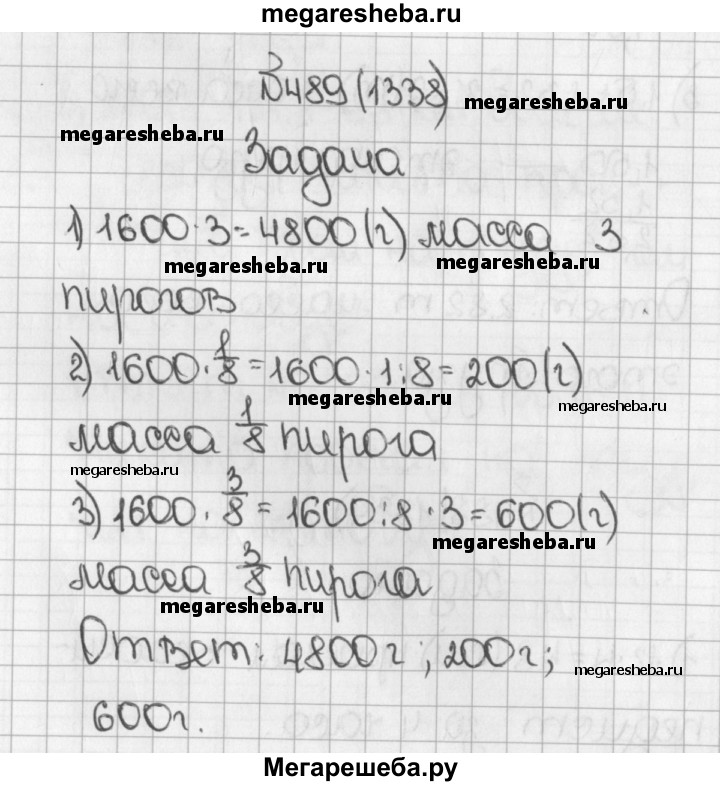 megaresheba.ru
№489 (1338)
megaresheba.ru
megaresheba.ru
Задача
1) 1600·3=4800(г) масса 3
megaresheba.ru
megaresheba.ru
пирогов
2) 1600·1/8=1600·1:8=200(г)
megaresheba.ru
megaresheba.ru
масса 1/8 пирога
megaresheba.ru
3) 1600·3/8=1600:8·3=600(г)
megaresheba.ru
масса 3/8 пирога
megaresheba.ru
Ответ: 4800г; 200г;
megaresheba.ru
600г.
Мегарешеба.ру